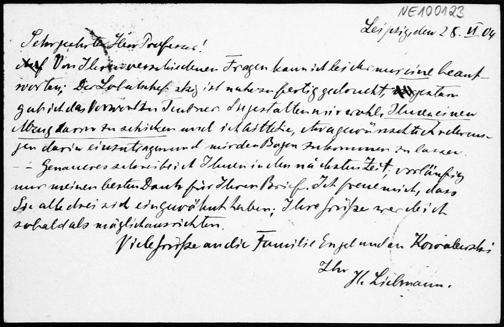 NE100123
Leipzig, den 28. VI. 04
Sehr geehrter Herr Professor!
Auf Von Ihren verschiedenen Fragen kann ich leider nur eine beant-
worten; Der Lobatschefskij ist nahezu fertig gedruckt, gestern
gab ich das Vorwort zu Teubner. Sie gestatten mir wohl, Ihnen einen
Abzug davon zu schicken und ich bitte, etwa gewünschte Änderun-
gen darin einzutragen und mir den Bogen zukommen zu lassen.
– Genaueres schreibe ich Ihnen in der nächsten Zeit, vorläufig
nur meinen besten Dank für Ihren Brief. Ich freue mich, dass
Sie alle drei sich eingewöhnt haben; Ihre Grüße werde ich
sobald als möglich ausrichten.
Viele Grüße an die Familie Engel und an Kowalewski
Ihr
H. Liebmann.